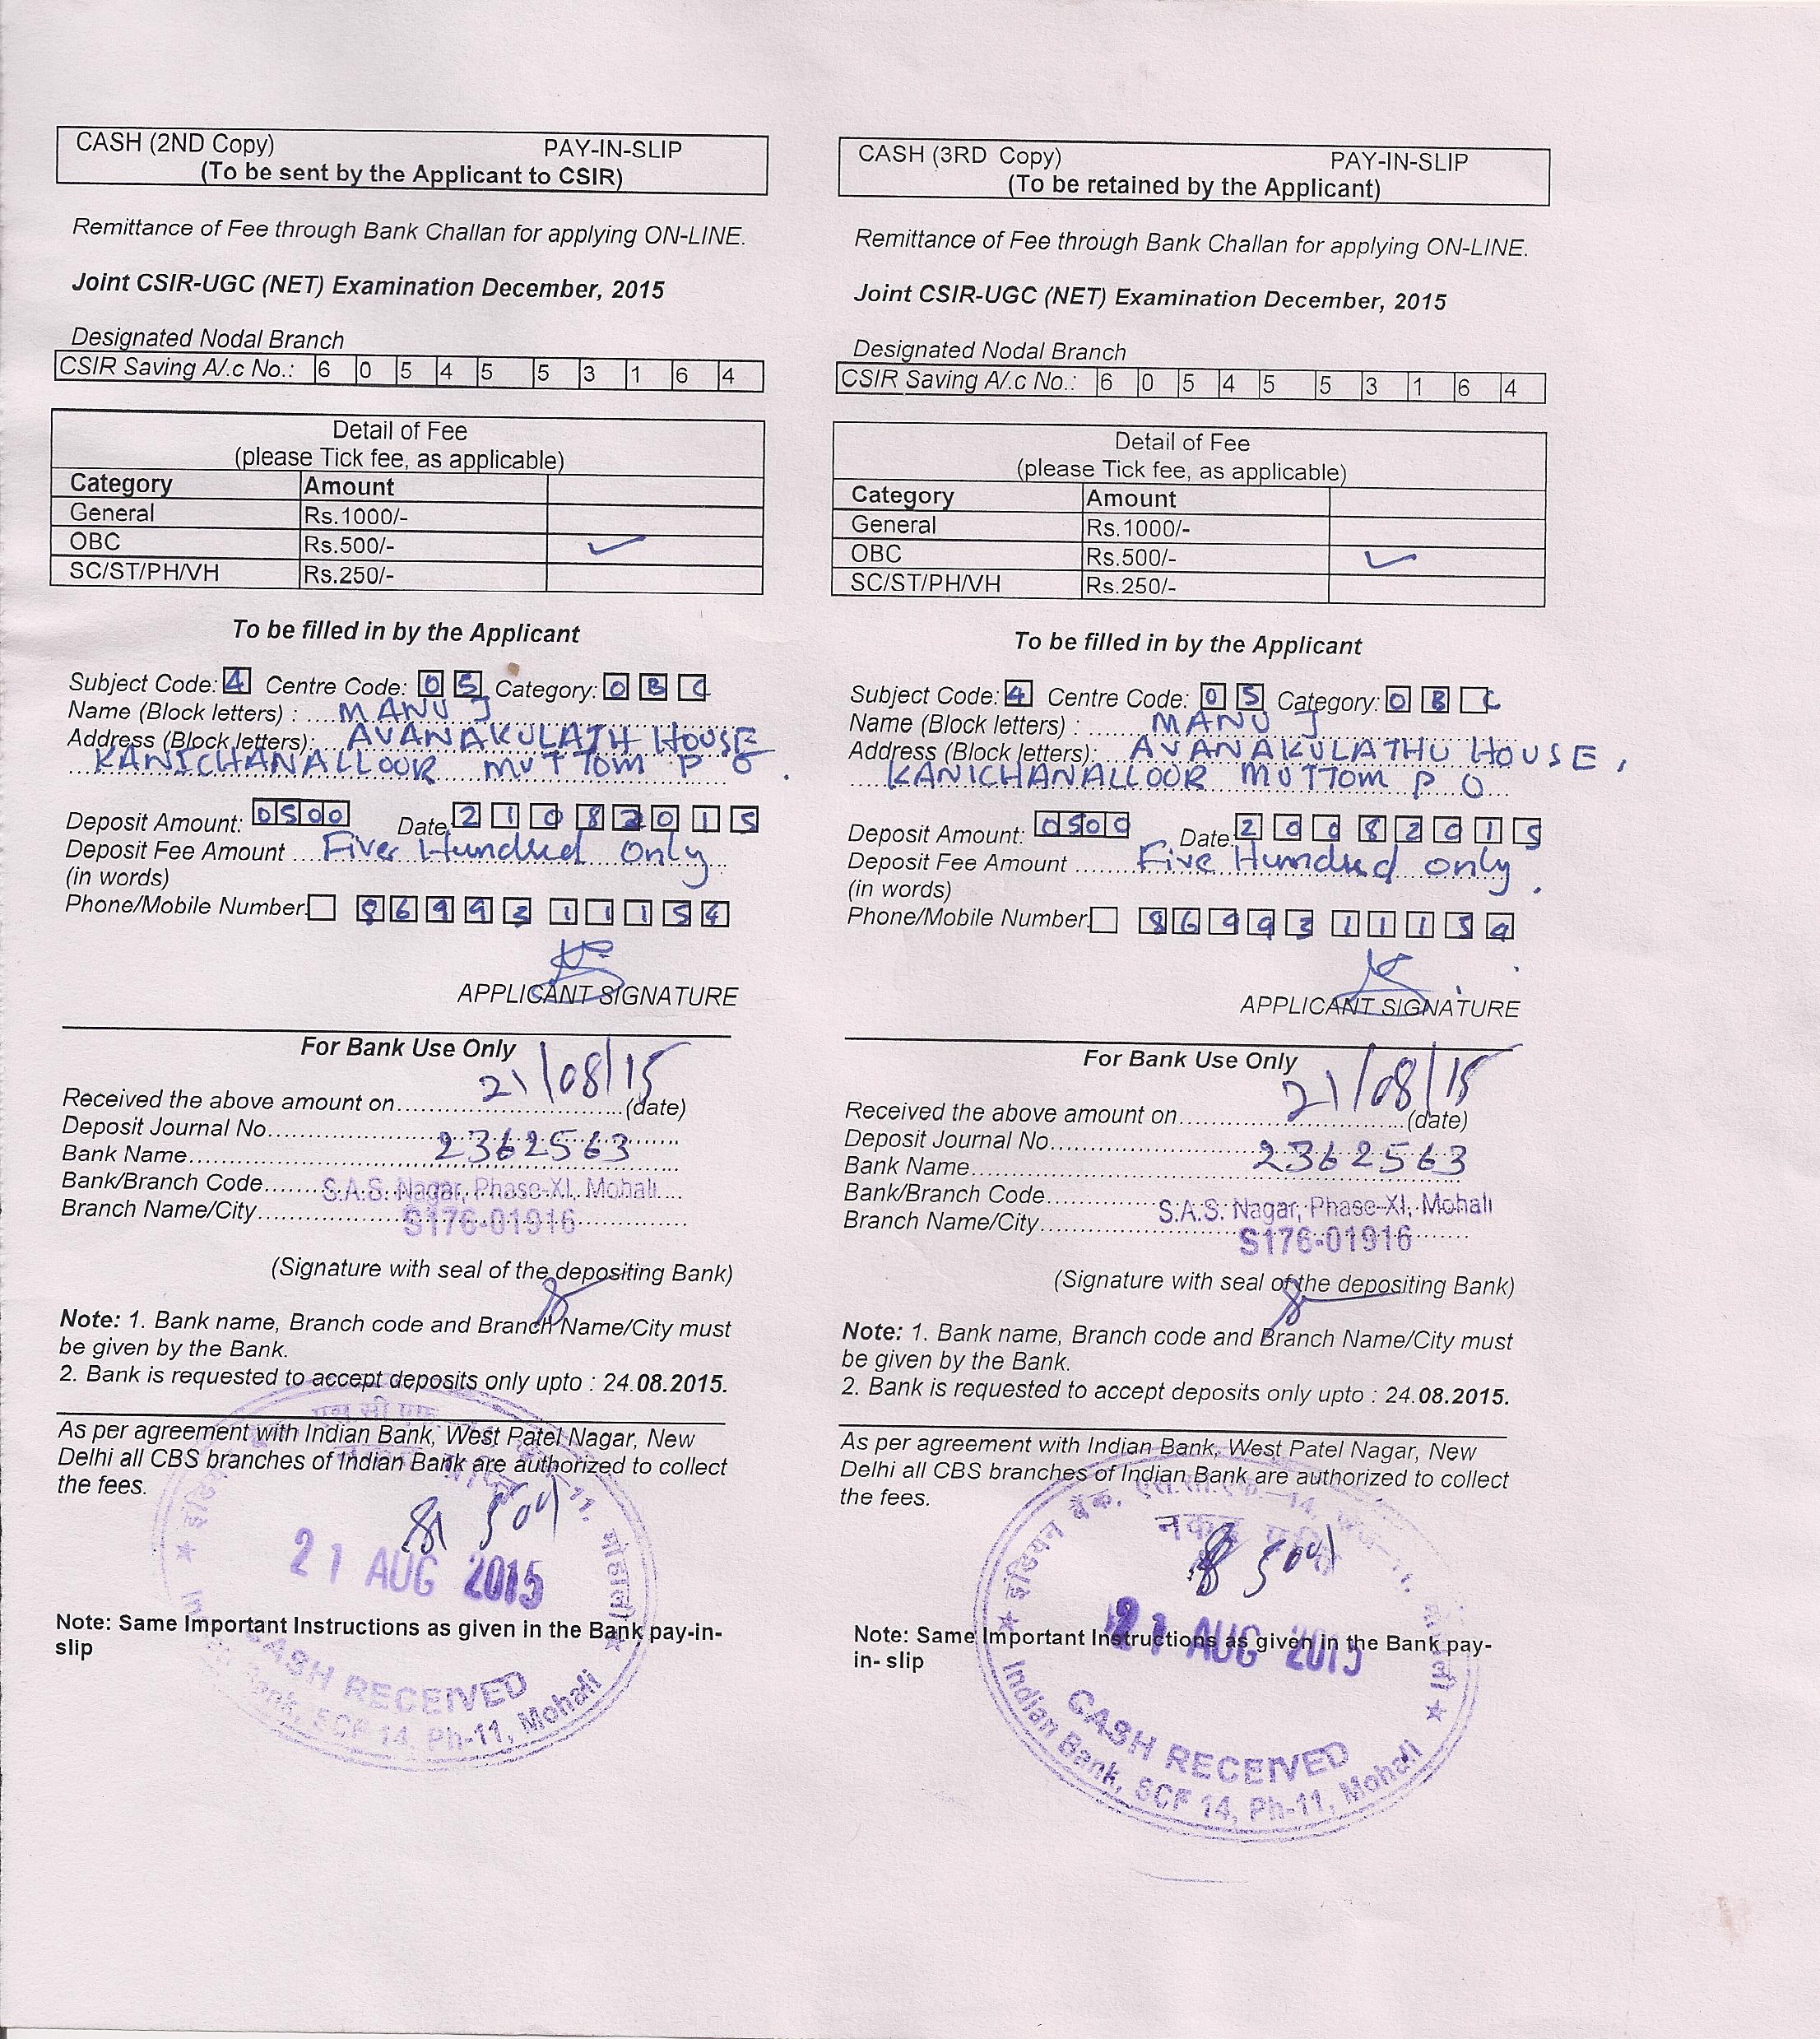 CASH (2ND Copy) PAY-IN-SLIP
(To be sent by the Applicant to CSIR)
Remittance of Fee through Bank Challan for applying ON-LINE.
Joint CSIR-UGC (NET) Examination December, 2015
Designated Nodal Branch
CSIR Saving A/.c No.: 6 0 5 4 5 5 3 1 6 4
Detail of Fee
(please Tick fee, as applicable)
Category Amount
General Rs.1000/-
OBC Rs.500/-
SC/ST/PH/VH Rs.250/-
To be filled in by the Applicant
Subject Code: 4 Centre Code: 0 5 Category: O B C
Name (Block letters) : MANU J
Address (Block letters): AVANAKULATH HOUSE
KANICHANALLOOR MUTTOM P O .
Deposit Amount: 0500 Date: 2 1 0 8 2 0 1 5
Deposit Fee Amount Five Hundred only
(in words)
Phone/Mobile Number: 8 6 9 9 3 1 1 1 5 4
APPLICANT SIGNATURE
For Bank Use Only
Received the above amount on 21/08/15 (date)
Deposit Journal No.
Bank Name 2362563
Bank/Branch Code S.A.S. Nagar, Phase-XI, Mohali
Branch Name/City S176-01916
(Signature with seal of the depositing Bank)
Note: 1. Bank name, Branch code and Branch Name/City must
be given by the Bank.
2. Bank is requested to accept deposits only upto : 24.08.2015.
As per agreement with Indian Bank, West Patel Nagar, New
Delhi all CBS branches of Indian Bank are authorized to collect
the fees.
21 AUG 2015
Note: Same Important Instructions as given in the Bank pay-in-
slip
CASH RECEIVED
Bank, SCF 14, Ph-11, Mohali
CASH (3RD Copy) PAY-IN-SLIP
(To be retained by the Applicant)
Remittance of Fee through Bank Challan for applying ON-LINE.
Joint CSIR-UGC (NET) Examination December, 2015
Designated Nodal Branch
CSIR Saving A/.c No.: 6 0 5 4 5 5 3 1 6 4
Detail of Fee
(please Tick fee, as applicable)
Category Amount
General Rs.1000/-
OBC Rs.500/-
SC/ST/PH/VH Rs.250/-
To be filled in by the Applicant
Subject Code: 4 Centre Code: 0 5 Category: O B C
Name (Block letters) : MANU J
Address (Block letters): AVANAKULATHU HOUSE,
KANICHANALLOOR MUTTOM P O
Deposit Amount: 0500 Date: 2 0 0 8 2 0 1 5
Deposit Fee Amount Five Hundred only.
(in words)
Phone/Mobile Number: 8 6 9 9 3 1 1 1 5 4
APPLICANT SIGNATURE
For Bank Use Only
Received the above amount on 21/08/15 (date)
Deposit Journal No.
Bank Name 2362563
Bank/Branch Code S.A.S. Nagar, Phase-XI, Mohali
Branch Name/City S176-01916
(Signature with seal of the depositing Bank)
Note: 1. Bank name, Branch code and Branch Name/City must
be given by the Bank.
2. Bank is requested to accept deposits only upto : 24.08.2015.
As per agreement with Indian Bank, West Patel Nagar, New
Delhi all CBS branches of Indian Bank are authorized to collect
the fees.
इंडियन बैंक, एस.सी.एफ.-14,
नकद
21 AUG 2015
Note: Same Important Instructions as given in the Bank pay-
in- slip
CASH RECEIVED
Indian Bank, SCF 14, Ph-11, Mohali